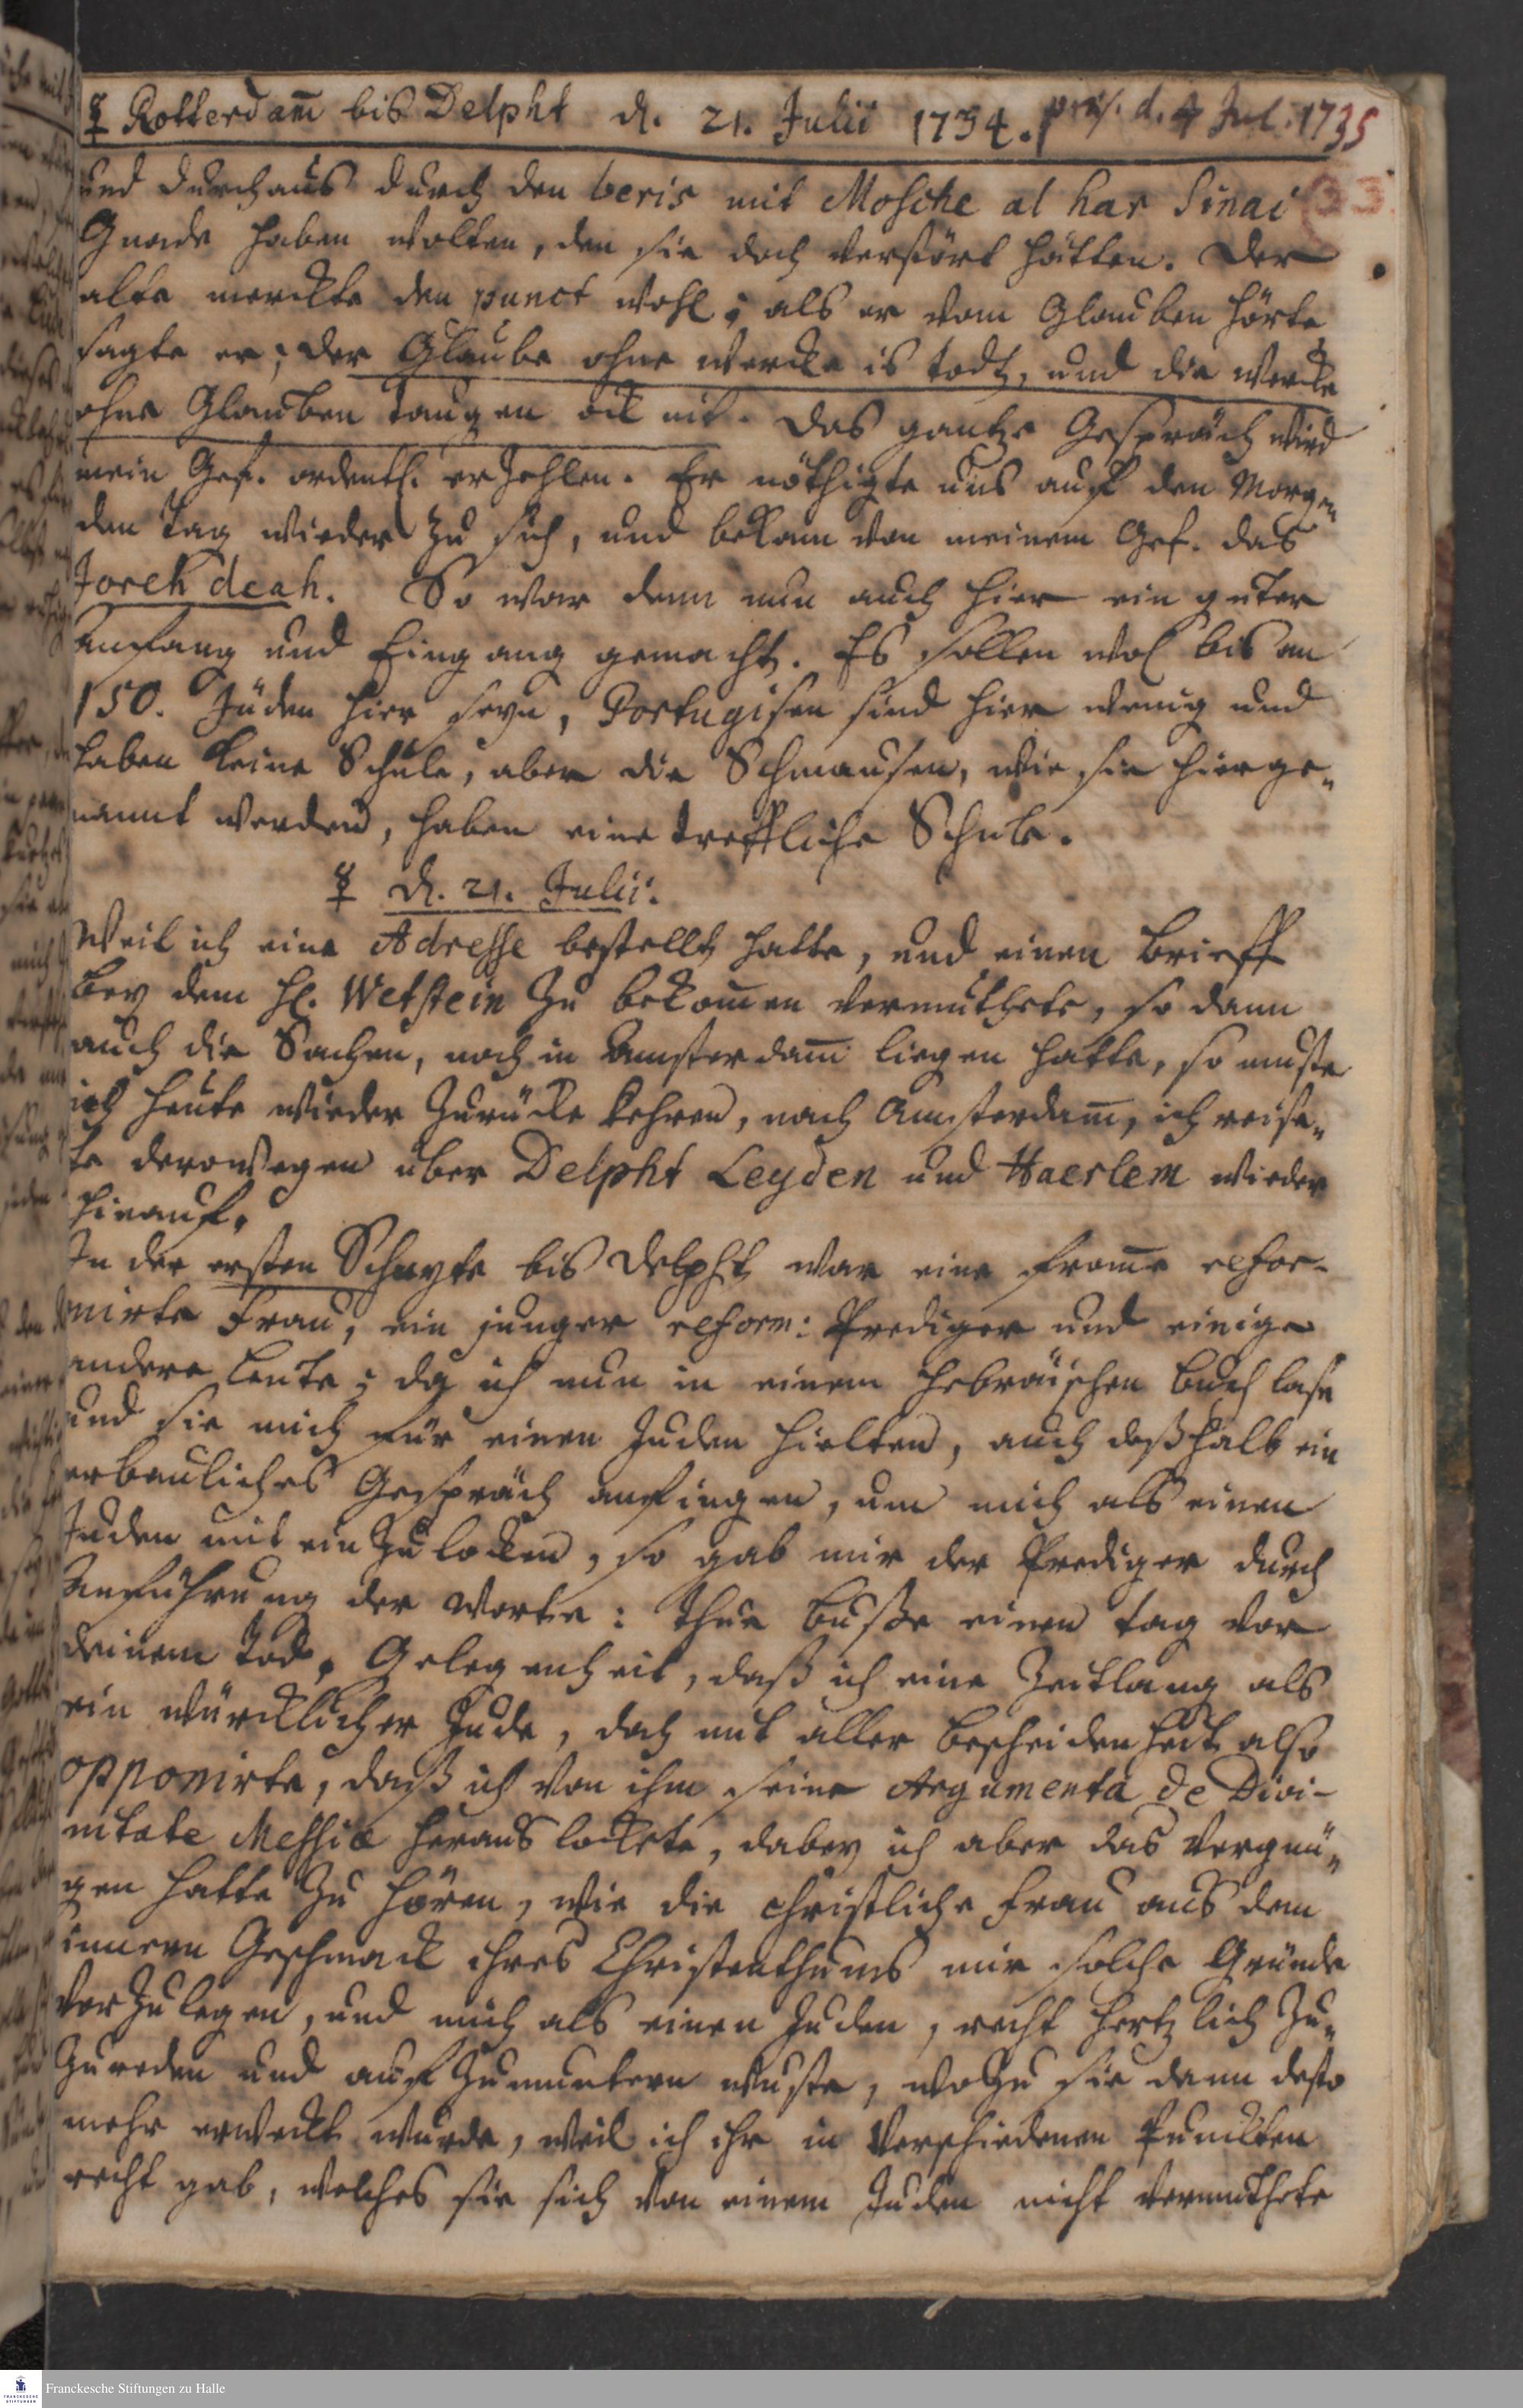 ☿ Rotterdam̅ bis Delpht d. 21. Julii 1734. præs. d. 4 Jul. 1735
und durchaus durch den beris mit Mosche al har Sinai 33.
Gnade haben wolten, den sie doch verstört hätten. Der
alte merckte den punct wohl; als er vom Glauben hörte
sagte er; der Glaube ohne wercke is todt, und die Wercke
ohne Glauben taugen ock nit. Das gantze Gespräch wird
mein Gef. ordentl. erzehlen. Er nöthigte uns auf den Morgen„
den Tag wieder zu sich, und bekam von meinem Gef. das
Joreh deah. So war denn nun auch hier ein guter
Anfang und Eingang gemacht. Es sollen wol bis an
150. Jüden hier seyn, Portugisen sind hier wenig und
haben keine Schule, aber die Schmausen, wie sie hier ge„
nannt werden, haben eine treffliche Schule.
☿ d. 21. Julii.
Weil ich eine Adresse bestellt hatte, und einen Brieff
bey dem H. Wetstein zu bekom̅en vermuthete, so dann
auch die Sachen, noch in Amsterdam̅ liegen hatte, so muste
ich heute wieder zurücke kehren, nach Amsterdam̅, ich reise„
te derowegen über Delpht Leyden und Haerlem wieder
hinauf.
In der ersten Schuyte bis Delpht war eine from̅e refor-
mirte Frau, ein junger reform: Prediger und einige
andere Leute; da ich nun in einem hebräischen Buch lase
und sie mich für einen Juden hielten, auch deßhalb ein
erbauliches Gespräch anfingen, um mich als einen
Juden mit ein zu locken, so gab mir der Prediger durch
Anführung der Worte: Thue Busse einen Tag vor
deinem Tod, Gelegenheit, daß ich eine Zeitlang als
ein würcklicher Jude, doch mit aller Bescheidenheit also
opponirte, daß ich von ihm seine Argumenta de Divi-
nitate Messiæ heraus lockete, dabey ich aber das Vergnü„
gen hatte zu hören, wie die christliche Frau aus dem
innern Geschmack ihres Christenthums mir solche Gründe
vorzulegen, und mich als einen Juden, recht hertzlich zu„
zureden und aufzumuntern wuste, wozu sie dann desto
mehr erweckt wurde, weil ich ihr in verschiedenen Puncten
recht gab, welches sie sich von einem Juden nicht vermuthete
Franckesche Stiftungen zu Halle